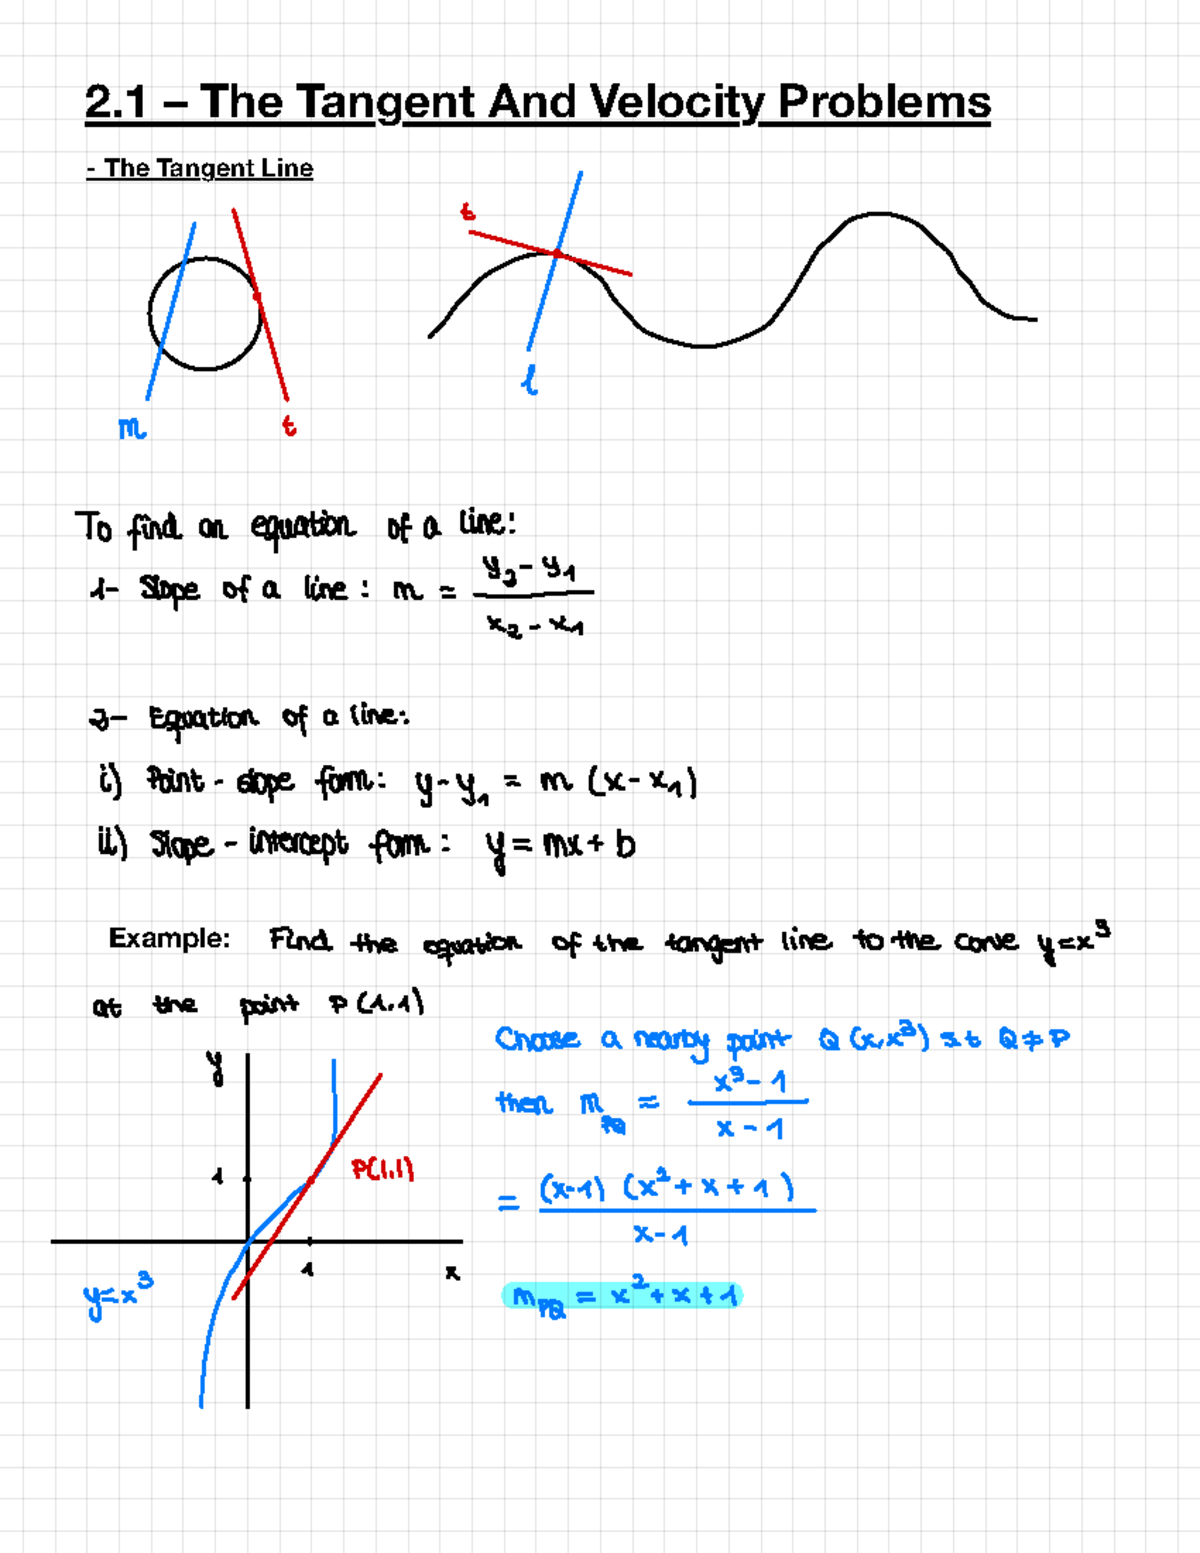 2.1 – The Tangent And Velocity Problems
- The Tangent Line
t
l
m
t
To find an equation of a line:
1- Slope of a line : m = y₂ - y₁ / x₂ - x₁
2- Equation of a line:
i) Point - slope form: y - y₁ = m (x - x₁)
ii) Slope - intercept form : y = mx + b
Example: Find the equation of the tangent line to the curve y=x³
at the point P(1,1)
Choose a nearby point Q (x,x³) s.t Q ≠ P
then m_PQ = x³ - 1 / x - 1
= (x-1) (x² + x + 1) / x - 1
m_PQ = x² + x + 1
y
1
P(1,1)
1
x
y=x³